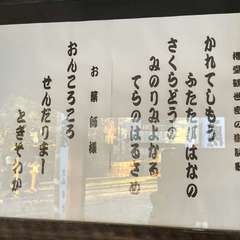 かれてしもう
ふたたびはなの
さくらどうの
みのりみよなる
てらのはるさめ
お薬師様
おんころころ
せんだりまー
とぎそわか